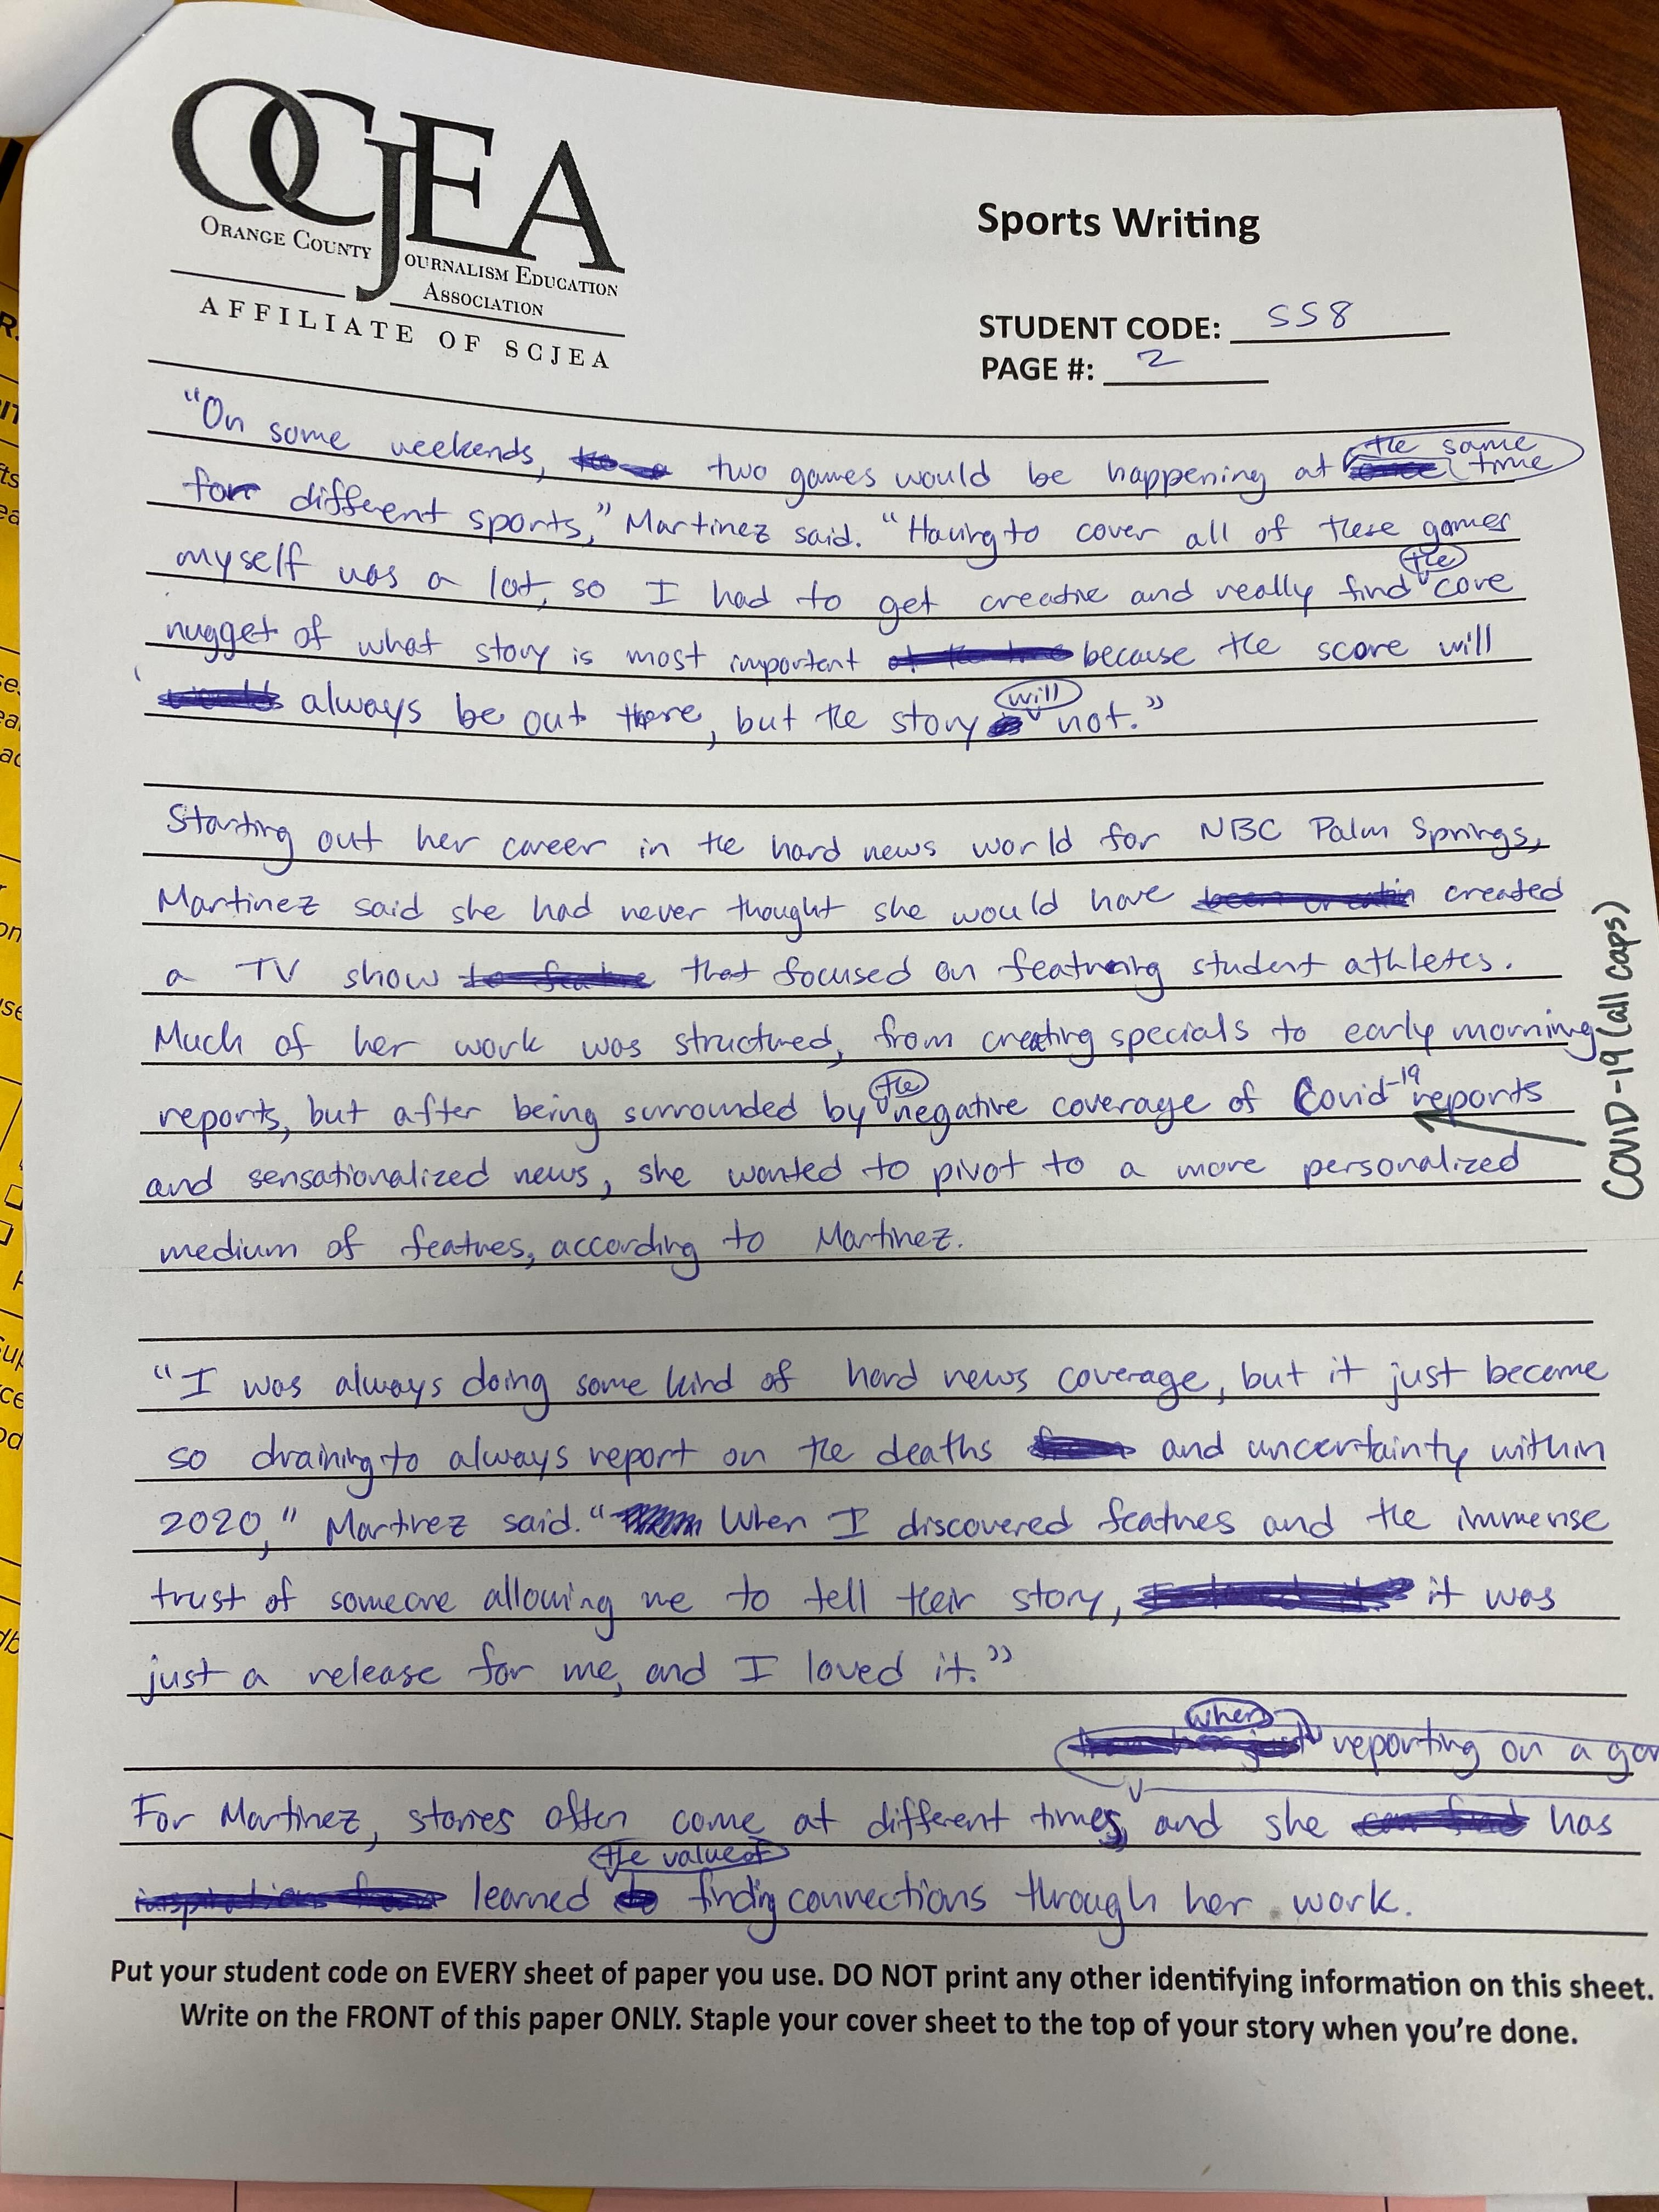 OCJEA
ORANGE COUNTY JOURNALISM EDUCATION
ASSOCIATION
AFFILIATE OF SCJEA
Sports Writing
STUDENT CODE: SS8
PAGE #: 2
"On some weekends, two games would be happening at the same time
for different sports," Martinez said. "Having to cover all of these games
myself was a lot, so I had to get creative and really find the core
nugget of what story is most important because the score will
always be out there, but the story will not."
Starting out her career in the hard news world for NBC Palm Springs,
Martinez said she had never thought she would have created
a TV show that focused on featuring student athletes.
Much of her work was structured, from creating specials to early morning
reports, but after being surrounded by the negative coverage of Covid-19 reports
COVID-19 (all caps)
and sensationalized news, she wanted to pivot to a more personalized
medium of features, according to Martinez.
"I was always doing some kind of hard news coverage, but it just became
so draining to always report on the deaths and uncertainty within
2020," Martinez said. "When I discovered features and the immense
trust of someone allowing me to tell their story, it was
just a release for me, and I loved it."
when reporting on a
For Martinez, stories often come at different times, and she has
learned the value of finding connections through her work.
Put your student code on EVERY sheet of paper you use. DO NOT print any other identifying information on this sheet.
Write on the FRONT of this paper ONLY. Staple your cover sheet to the top of your story when you're done.